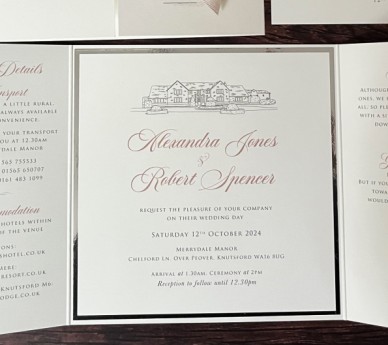 Details
nsport
A LITTLE RURAL,
LWAYS AVAILABLE
ONVENIENCE.
YOUR TRANSPORT
YOU AT 12.30AM
RRYDALE MANOR
565 755333
01565 650707
0161 483 1099
modation
HOTELS WITHIN
OF THE VENUE.
ONS:
SHOTEL.CO.UK
RESORT.CO.UK
KNUTSFORD M6:
ODGE.CO.UK
Alexandra Jones
&
Robert Spencer
REQUEST THE PLEASURE OF YOUR COMPANY
ON THEIR WEDDING DAY
SATURDAY 12TH OCTOBER 2024
MERRYDALE MANOR
CHELFORD LN, OVER PEOVER, KNUTSFORD WA16 8UG
ARRIVAL AT 1.30AM, CEREMONY AT 2PM
Reception to follow until 12.30pm
ALTHOUGH
ONES, WE
SO PLEAS
WITH A
DOW
BUT IF YOU
TOWA
WOULD